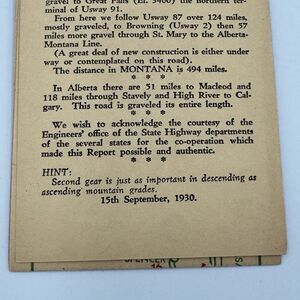 gravel to Great Falls (El. 3400) the northern ter-
minal of Usway 91.
From here we follow Usway 87 over 124 miles,
mostly graveled, to Browning (Usway 2) then 57
miles more gravel through St. Mary to the Alberta-
Montana Line.
(A great deal of new construction is either under
way or contemplated on this road).
The distance in MONTANA is 494 miles.
* * *
In Alberta there are 51 miles to Macleod and
118 miles through Stavely and High River to Cal-
gary. This road is graveled its entire length.
* * *
We wish to acknowledge the courtesy of the
Engineers' office of the State Highway departments
of the several states for the co-operation which
made this Report possible and authentic.
* * *
HINT:
Second gear is just as important in descending as
ascending mountain grades.
15th September, 1930.
SPENCER